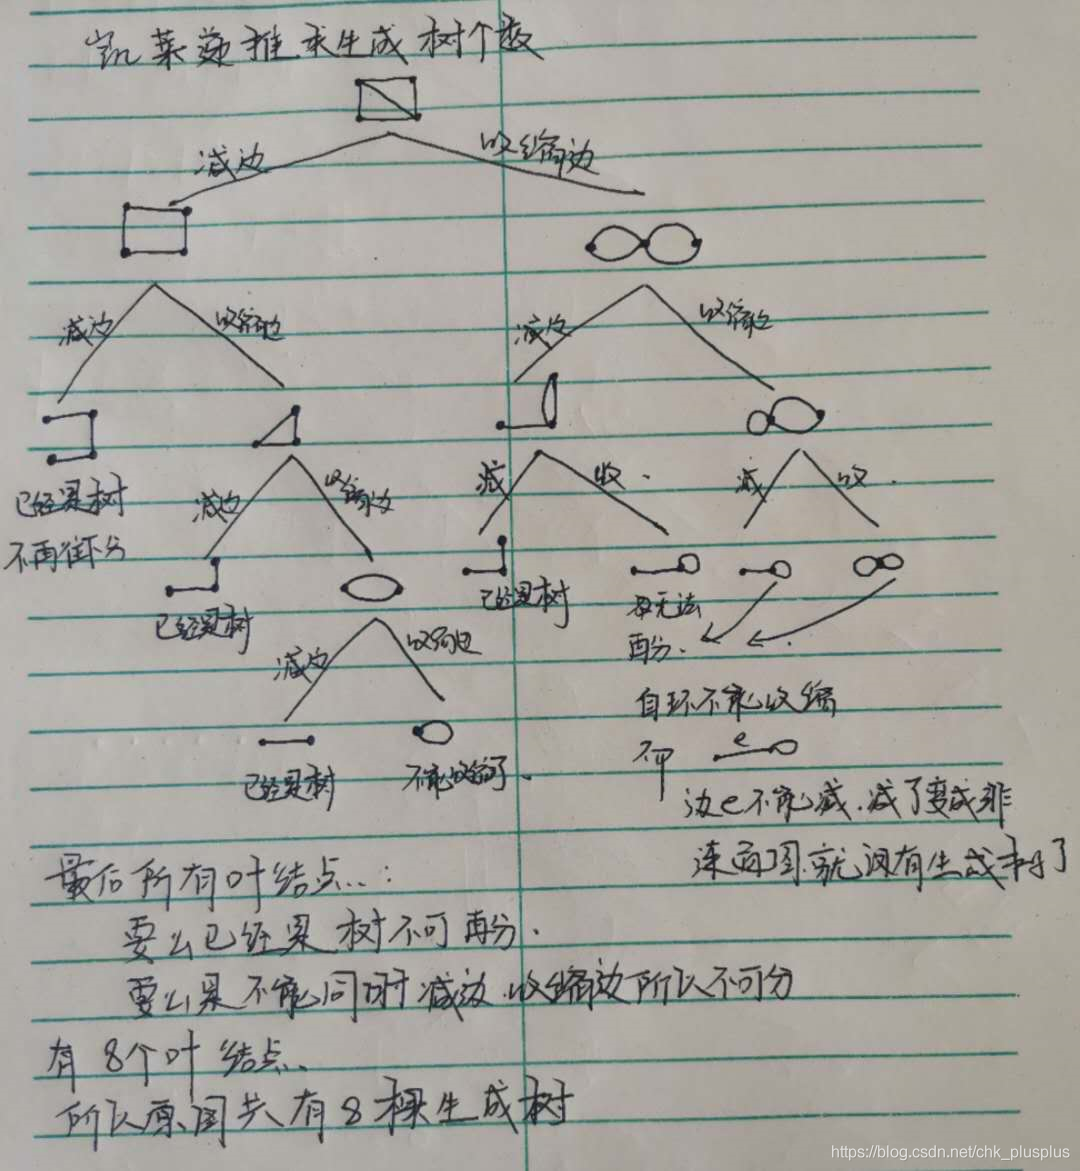 凯莱递推求生成树个数
减边 收缩边
减边 收缩边 减边 收缩边
已经是树
不再往下分
减边 收缩边 减 收. 减 收.
已经是树 已经是树 无法
再分.
减边 收缩边
自环不能收缩
不 e
已经是树 不能收缩了. 边e不能减.减了变成非
连通图.就没有生成树了
最后所有叶结点..:
要么已经是树不可再分.
要么是不能同时减边.收缩边所以不可分
有8个叶结点..
所以原图共有8棵生成树
https://blog.csdn.net/chk_plusplus